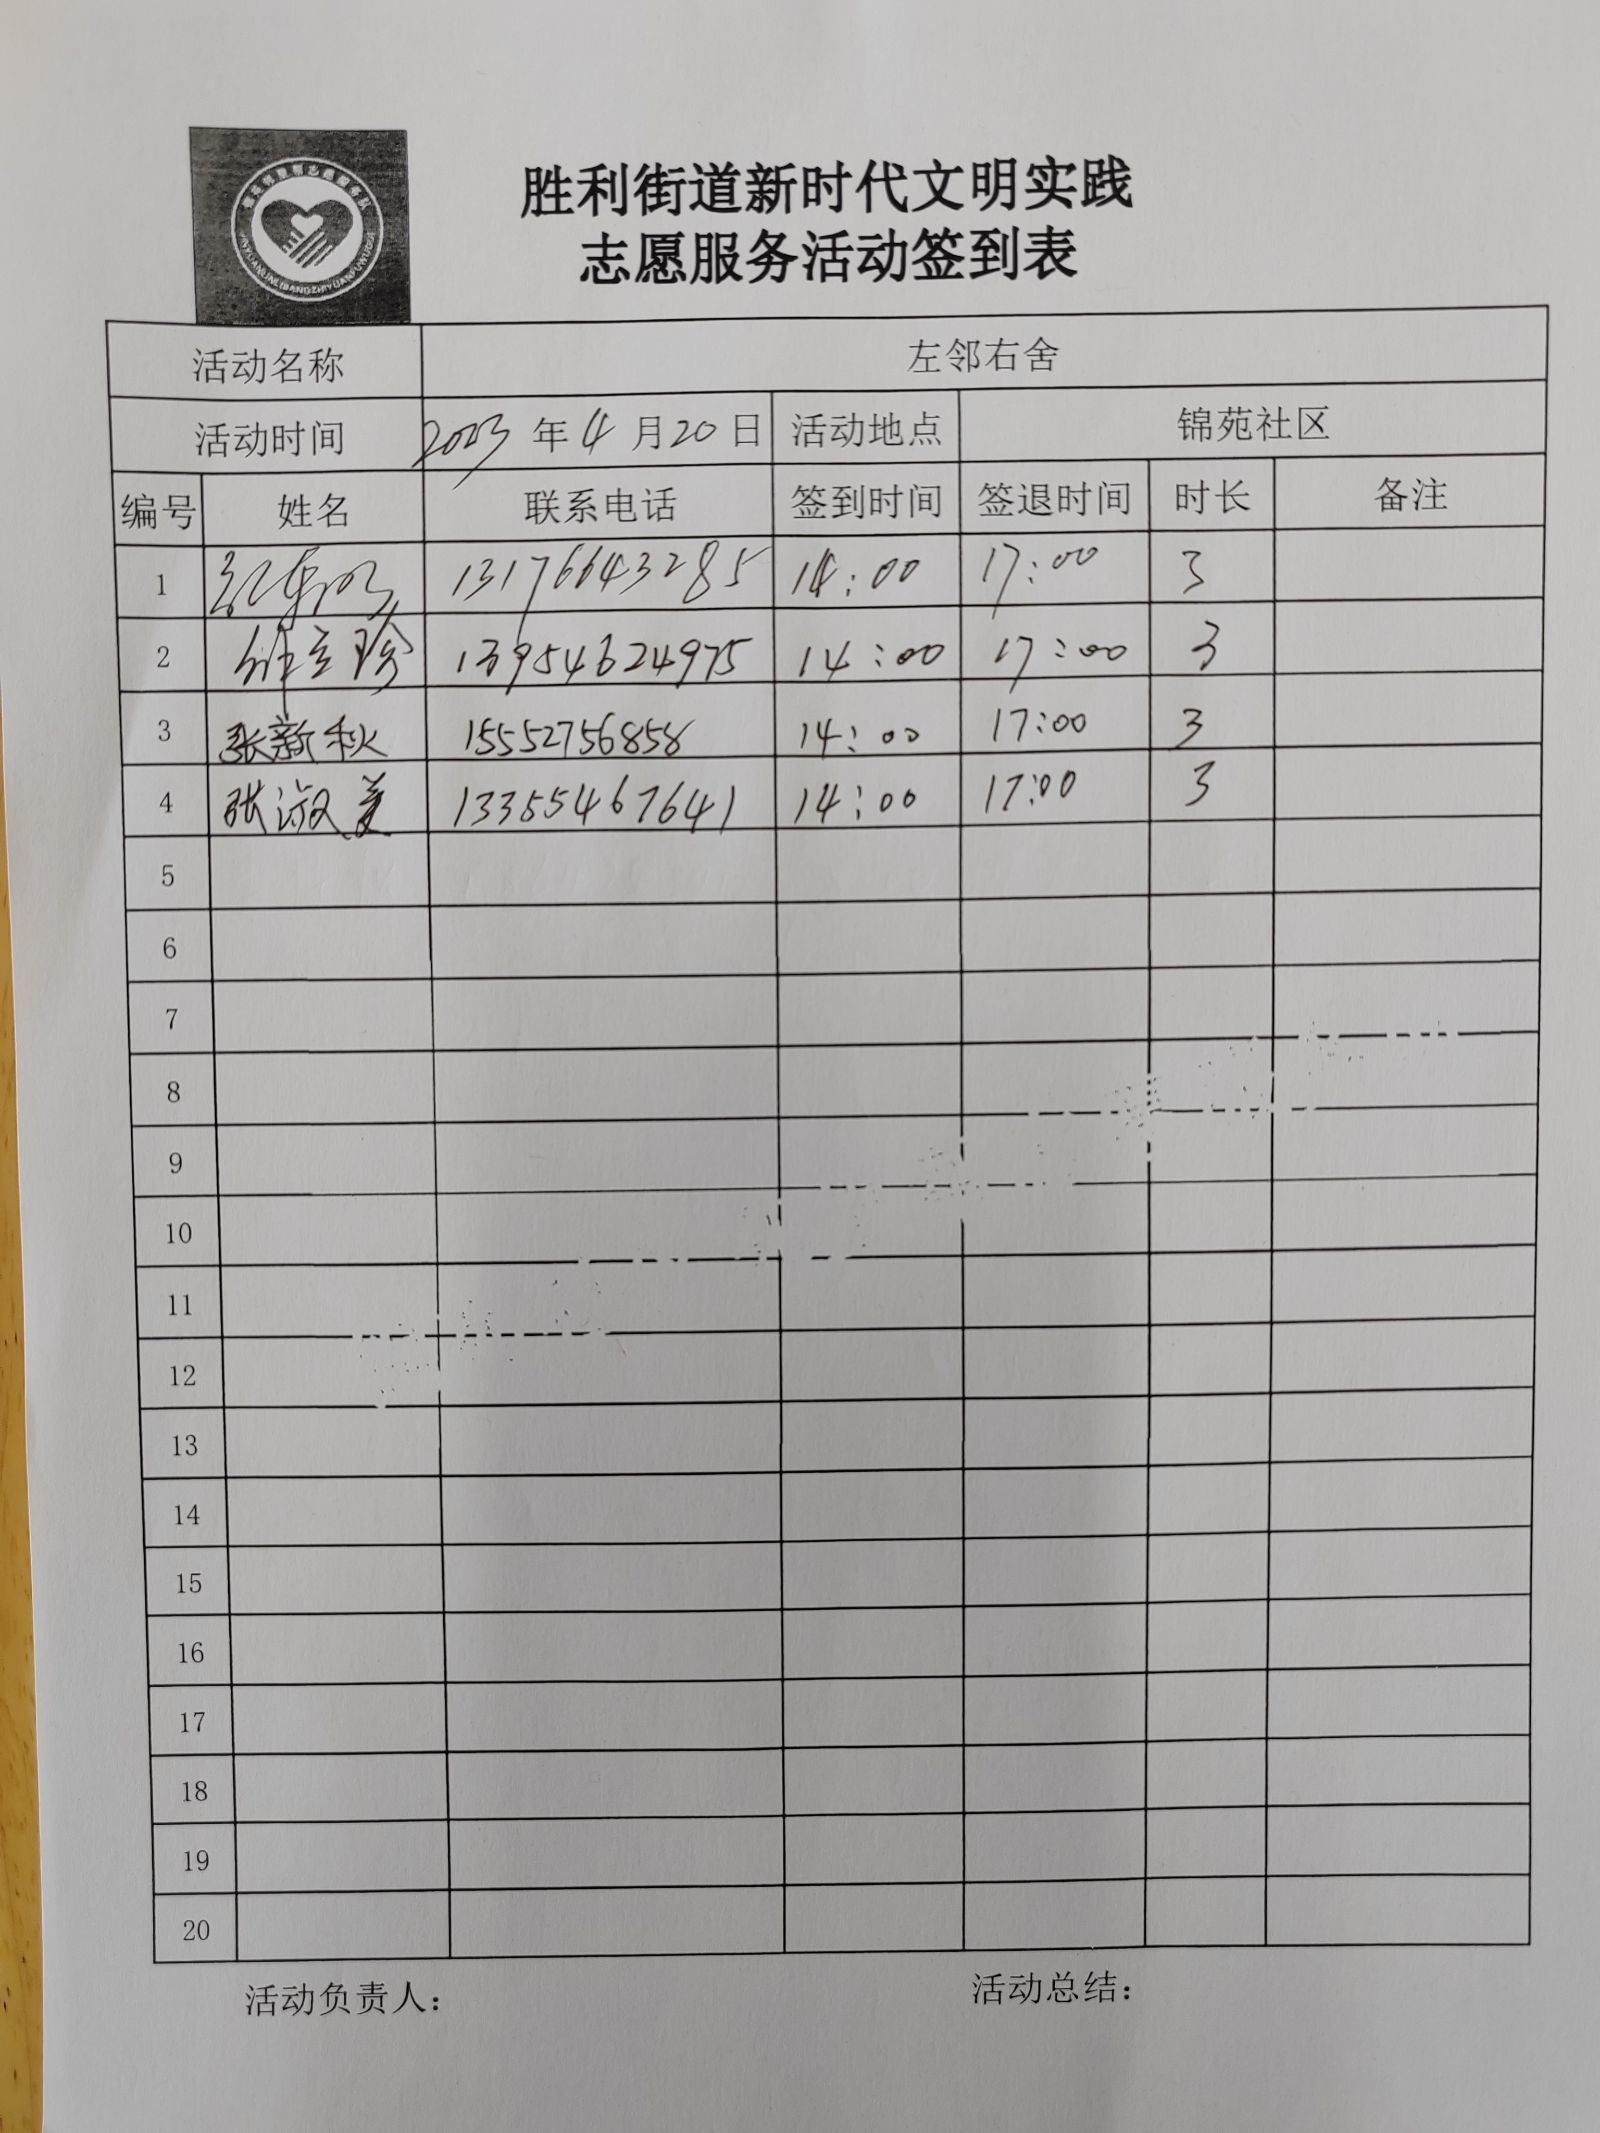 胜利街道新时代文明实践
志愿服务活动签到表
活动名称 左邻右舍
活动时间 2023 年 4 月 20 日 活动地点 锦苑社区
编号 姓名 联系电话 签到时间 签退时间 时长 备注
1 13176643285 14:00 17:00 3
2 13954624975 14:00 17:00 3
3 张新秋 15552756858 14:00 17:00 3
4 张淑美 13355467641 14:00 17:00 3
5
6
7
8
9
10
11
12
13
14
15
16
17
18
19
20
活动负责人： 活动总结：